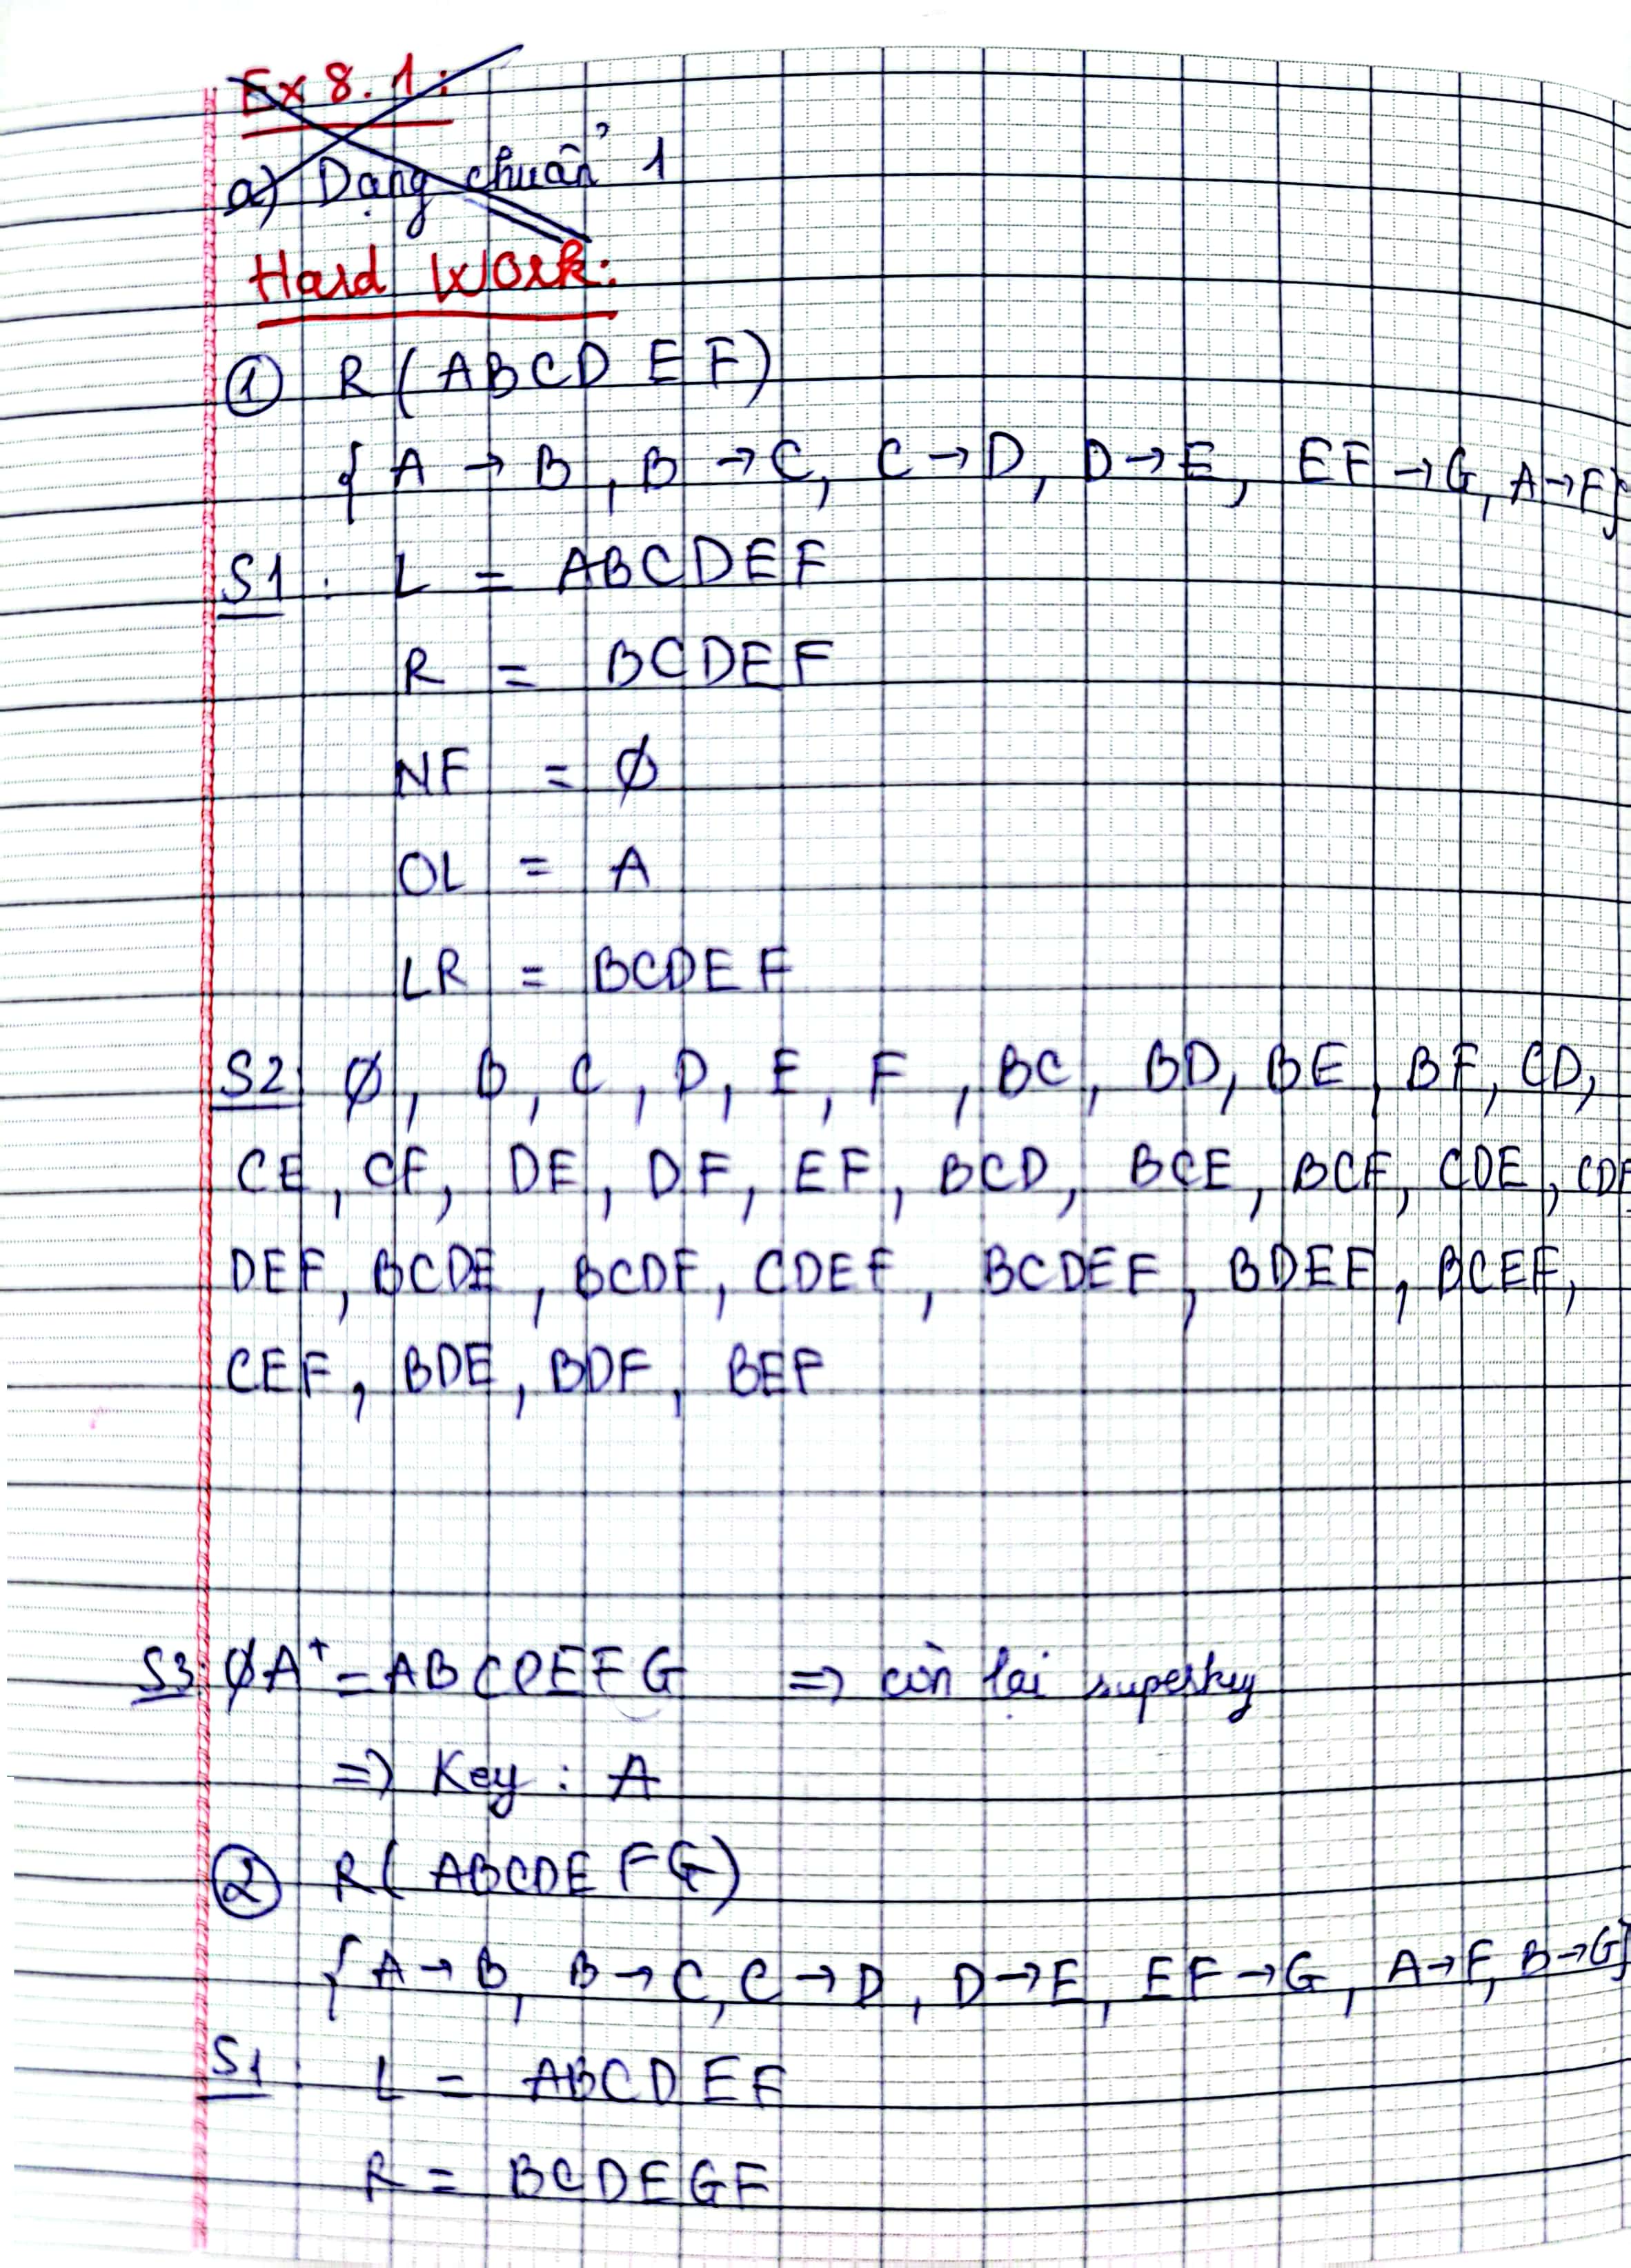 Ex 8.1:
a) Dạng chuẩn 1
Hard Work:
① R (ABCD EF)
{ A → B, B → C, C → D, D → E, EF → G, A → F}
S1: L = ABCDEF
R = BCDEF
NF = Ø
OL = A
LR = BCDEF
S2: Ø, B, C, D, E, F, BC, BD, BE, BF, CD,
CE, CF, DE, DF, EF, BCD, BCE, BCF, CDE, CDF
DEF, BCDE, BCDF, CDEF, BCDEF, BDEF, BCEF,
CEF, BDE, BDF, BEF
S3: ØA⁺ = ABCDEFG => còn lại superkey
=> Key: A
② R( ABCDE FG)
{ A → B, B → C, C → D, D → E, EF → G, A → F, B → G}
S1: L = ABCDEF
R = BCDEGF